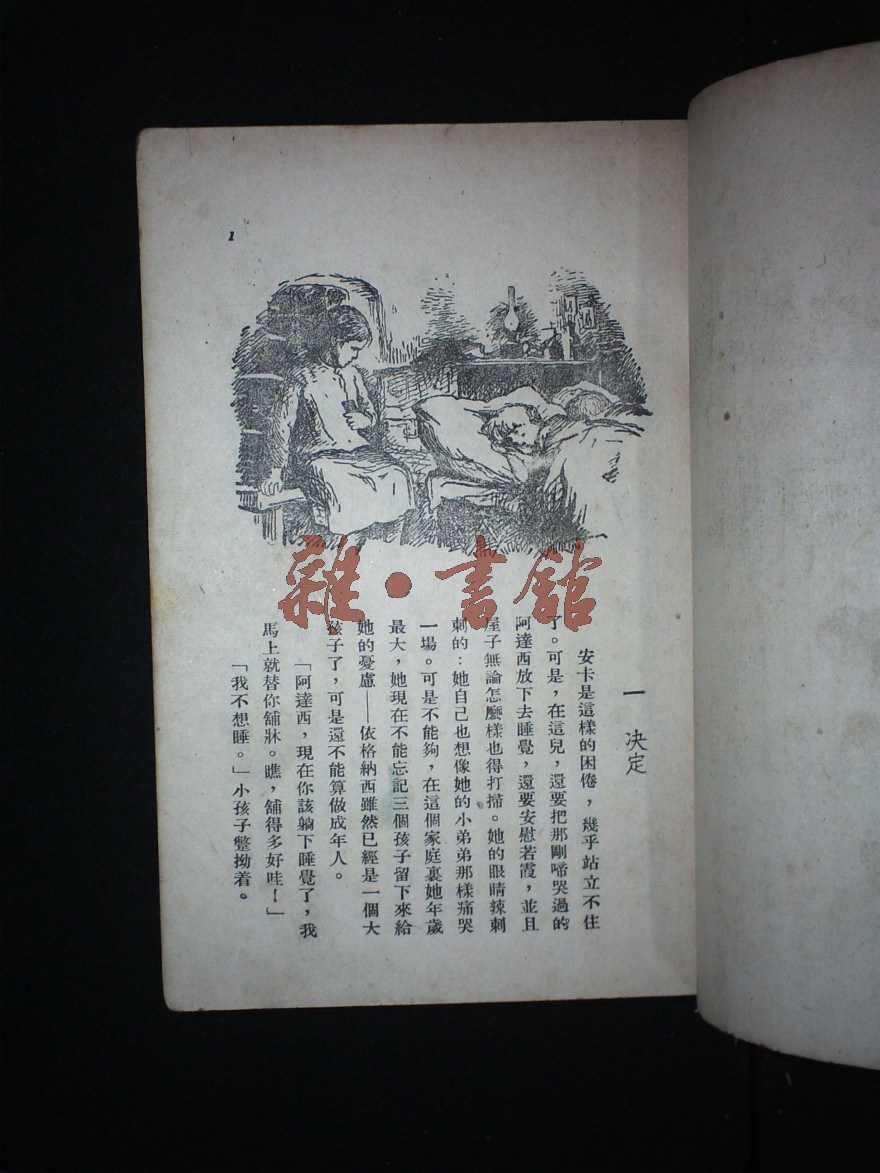 1
一 決定
安卡是這樣的困倦，幾乎站立不住
了。可是，在這兒，還要把那剛啼哭過的
阿達西放下去睡覺，還要安慰若霞，並且
屋子無論怎麼樣也得打掃。她的眼睛辣刺
刺的：她自己也想像她的小弟弟那樣痛哭
一場。可是不能夠，在這個家庭裏她年歲
最大，她現在不能忘記三個孩子留下來給
她的憂慮——依格納西雖然已經是一個大
孩子了，可是還不能算做成年人。
「阿達西，現在你該躺下睡覺了，我
馬上就替你舖牀。瞧，舖得多好哇！」
「我不想睡。」小孩子彆拗着。
雜·書館